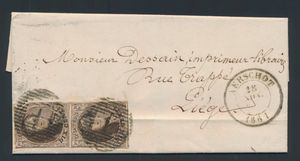 Monsieur Dessain imprimeur libraire
Rue Trappé
Liége
AERSCHOT
1861